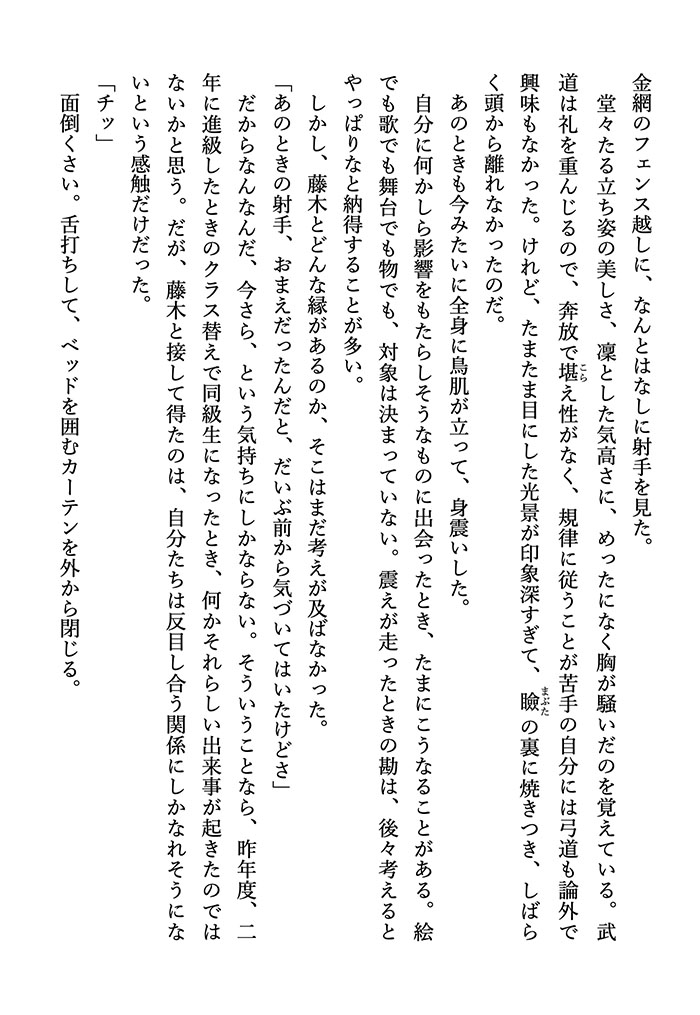 金網のフェンス越しに、なんとはなしに射手を見た。
　堂々たる立ち姿の美しさ、凜とした気高さに、めったになく胸が騒いだのを覚えている。武
道は礼を重んじるので、奔放で堪え性がなく、規律に従うことが苦手の自分には弓道も論外で
興味もなかった。けれど、たまたま目にした光景が印象深すぎて、瞼の裏に焼きつき、しばら
く頭から離れなかったのだ。
　あのときも今みたいに全身に鳥肌が立って、身震いした。
　自分に何かしら影響をもたらしそうなものに出会ったとき、たまにこうなることがある。絵
でも歌でも舞台でも物でも、対象は決まっていない。震えが走ったときの勘は、後々考えると
やっぱりなと納得することが多い。
　しかし、藤木とどんな縁があるのか、そこはまだ考えが及ばなかった。
「あのときの射手、おまえだったんだと、だいぶ前から気づいてはいたけどさ」
　だからなんなんだ、今さら、という気持ちにしかならない。そういうことなら、昨年度、二
年に進級したときのクラス替えで同級生になったとき、何かそれらしい出来事が起きたのでは
ないかと思う。だが、藤木と接して得たのは、自分たちは反目し合う関係にしかなれそうにな
いという感触だけだった。
「チッ」
　面倒くさい。舌打ちして、ベッドを囲むカーテンを外から閉じる。